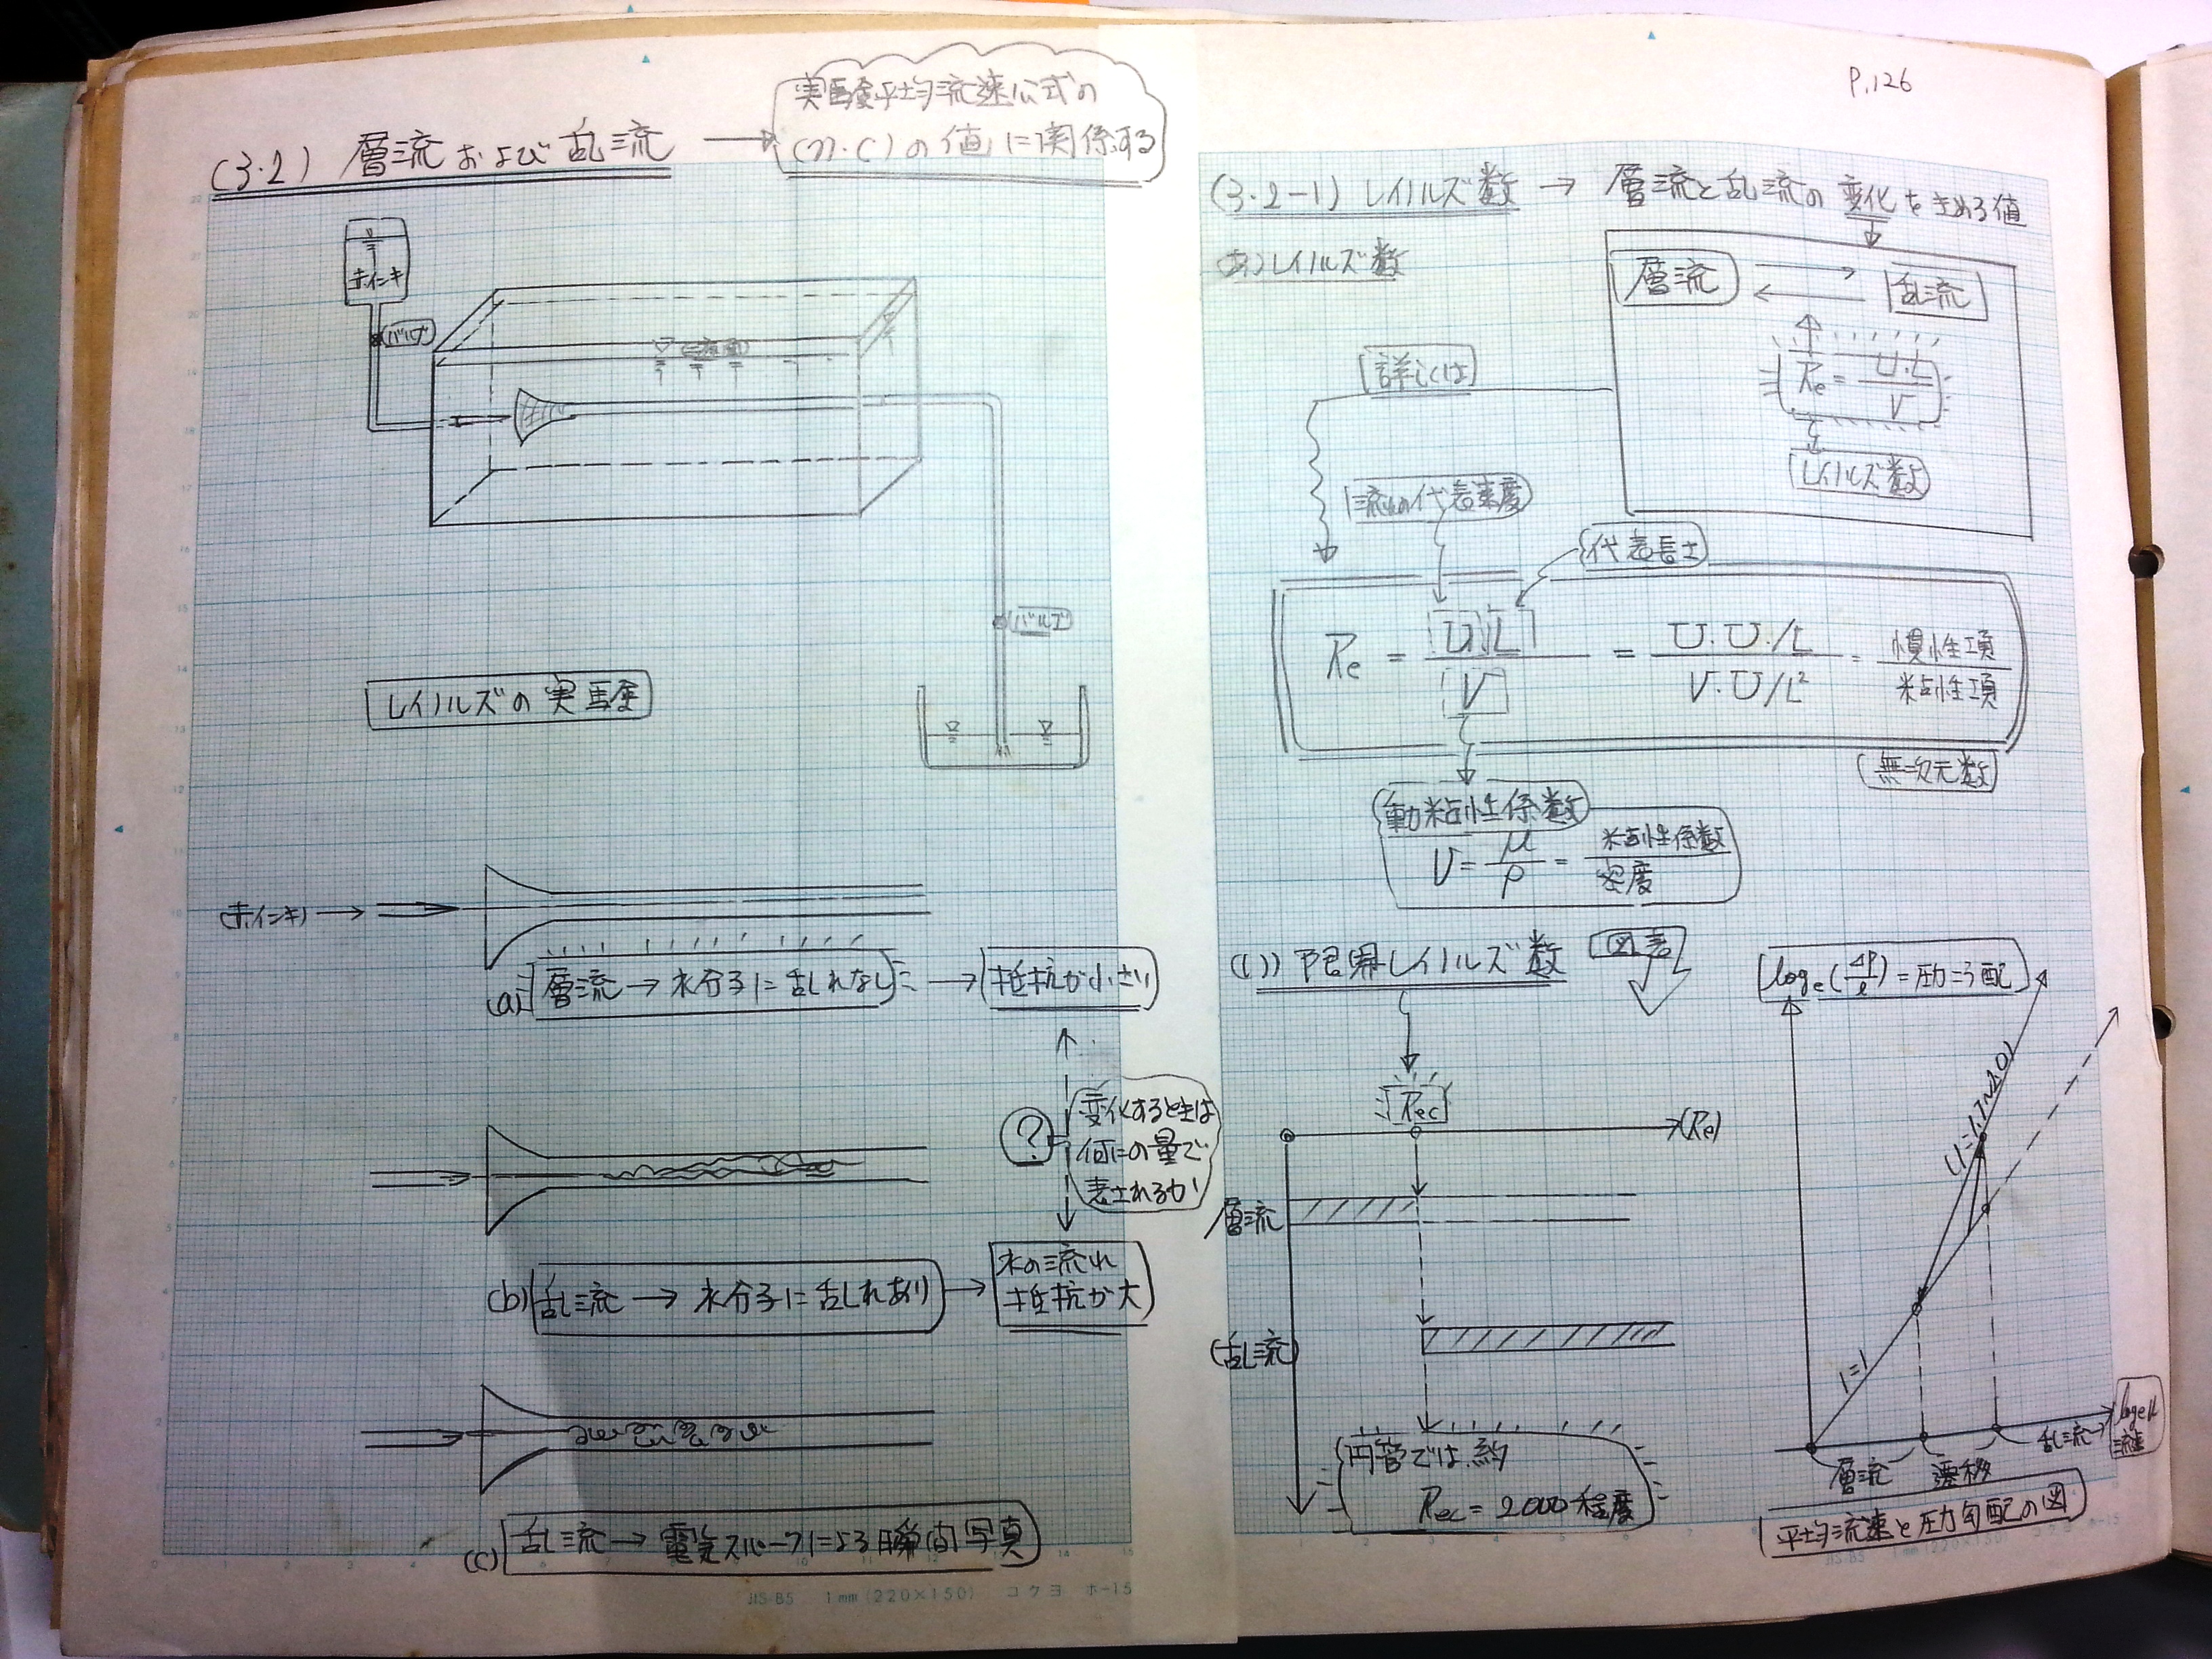 実験平均流速公式の
(n・C)の値に関係する
(3・2) 層流および乱流
赤インキ
バルブ
バルブ
レイノルズの実験
(赤インキ)
(a) 層流→水分子に乱れなし
抵抗が小さい
?
変化するときは
何の量で
表されるか
(b) 乱流→水分子に乱れあり
水の流れ
抵抗が大
(c) 乱流→電気スパークによる瞬間写真
JIS-B5 1mm(220×150) コクヨ ホ-15
P.126
(3・2-1) レイノルズ数→層流と乱流の変化をきめる値
(あ) レイノルズ数
層流
乱流
Re = U・L / ν
レイノルズ数
詳しくは
流れの代表速度
代表長さ
Re = UL / ν = U・U・/L / ν・U/L² = 慣性項 / 粘性項
(無次元数)
動粘性係数
ν = μ / ρ = 粘性係数 / 密度
(い) 限界レイノルズ数
図表
Rec
(Re)
層流
(乱流)
円管では約
Rec = 2000程度
loge(ΔP/l) = 圧力こう配
(1=1.7~2.0)
1=1
層流
遷移
乱流
loge u
流速
平均流速と圧力勾配の図